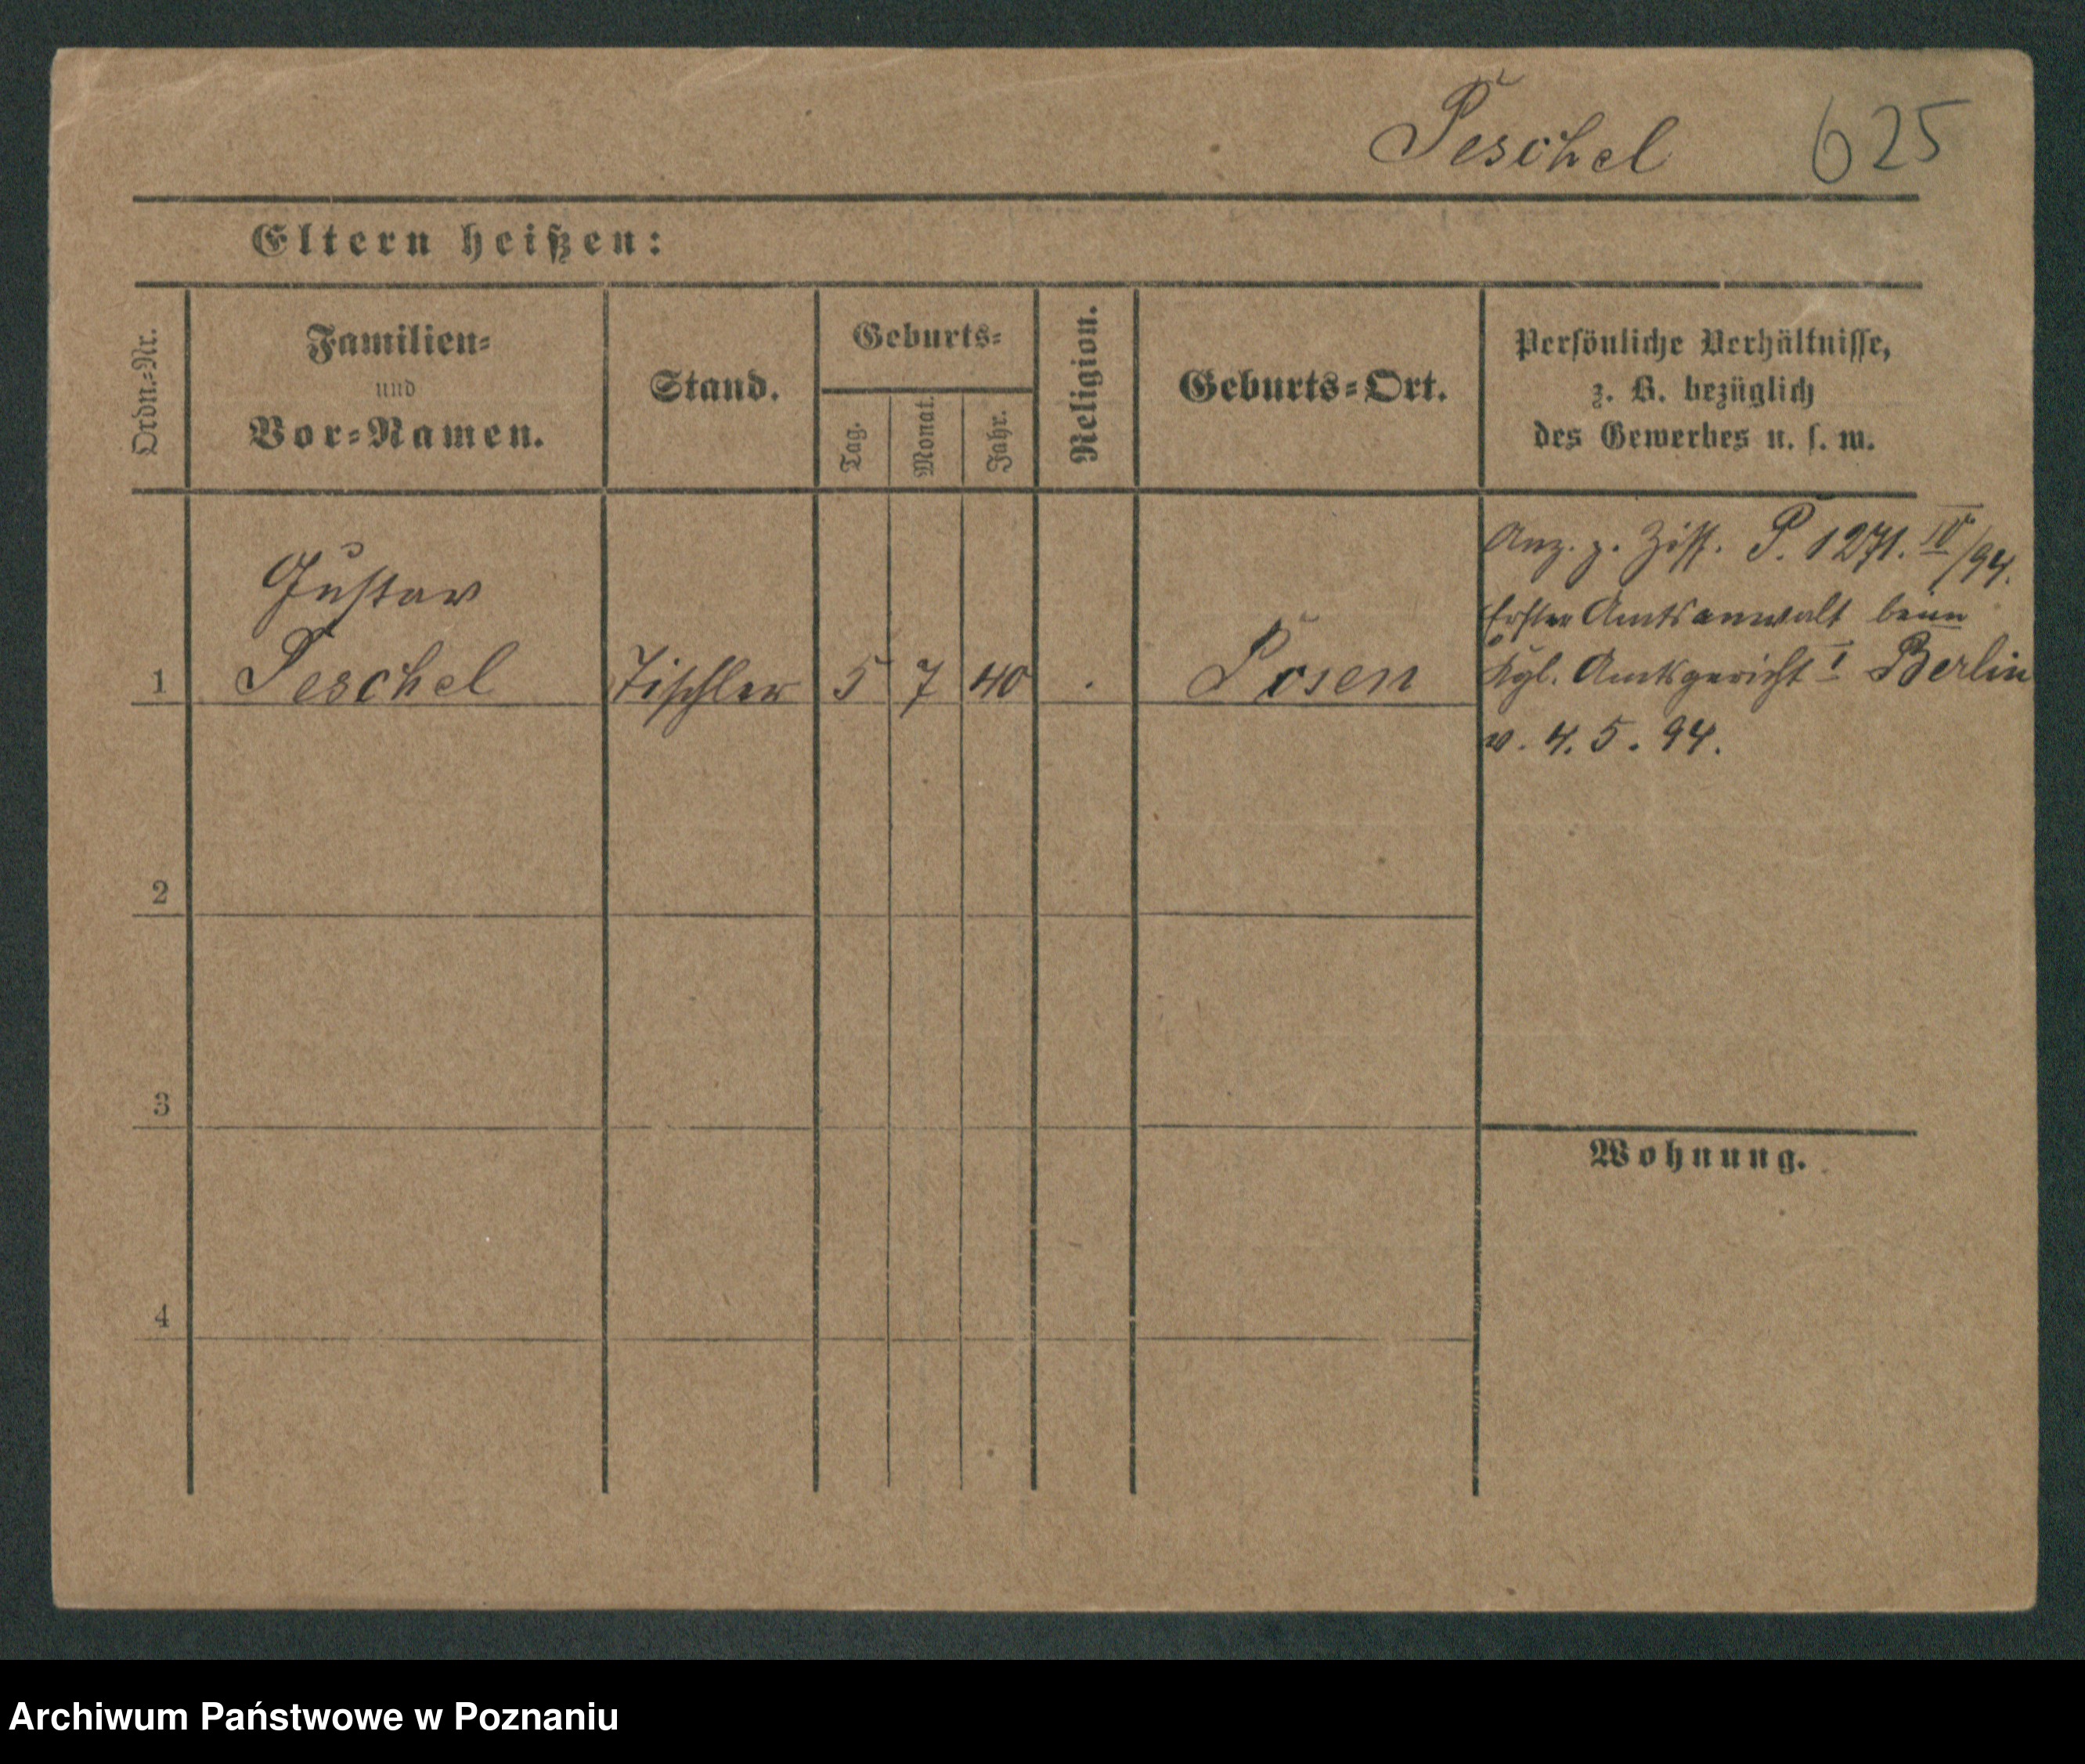 Peschel 625
Eltern heißen:
Ordn.-Nr.
Familien-
und
Vor-Namen.
Stand.
Geburts-
Tag.
Monat.
Jahr.
Religion.
Geburts-Ort.
Persönliche Verhältnisse,
z. B. bezüglich
des Gewerbes u. s. w.
Gustav
1 Peschel Tischler 5 7 40 . Posen
Anz. z. Ziff. P. 1271. IV/94.
Erster Amtsanwalt beim
Kgl. Amtsgericht I Berlin
v. 4. 5. 94.
2
3
4
Wohnung.
Archiwum Państwowe w Poznaniu